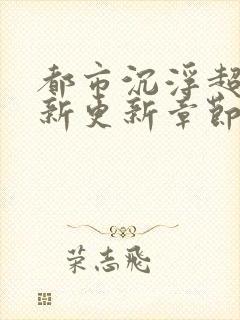 都市沉浮超
新更新章节
荣志飞